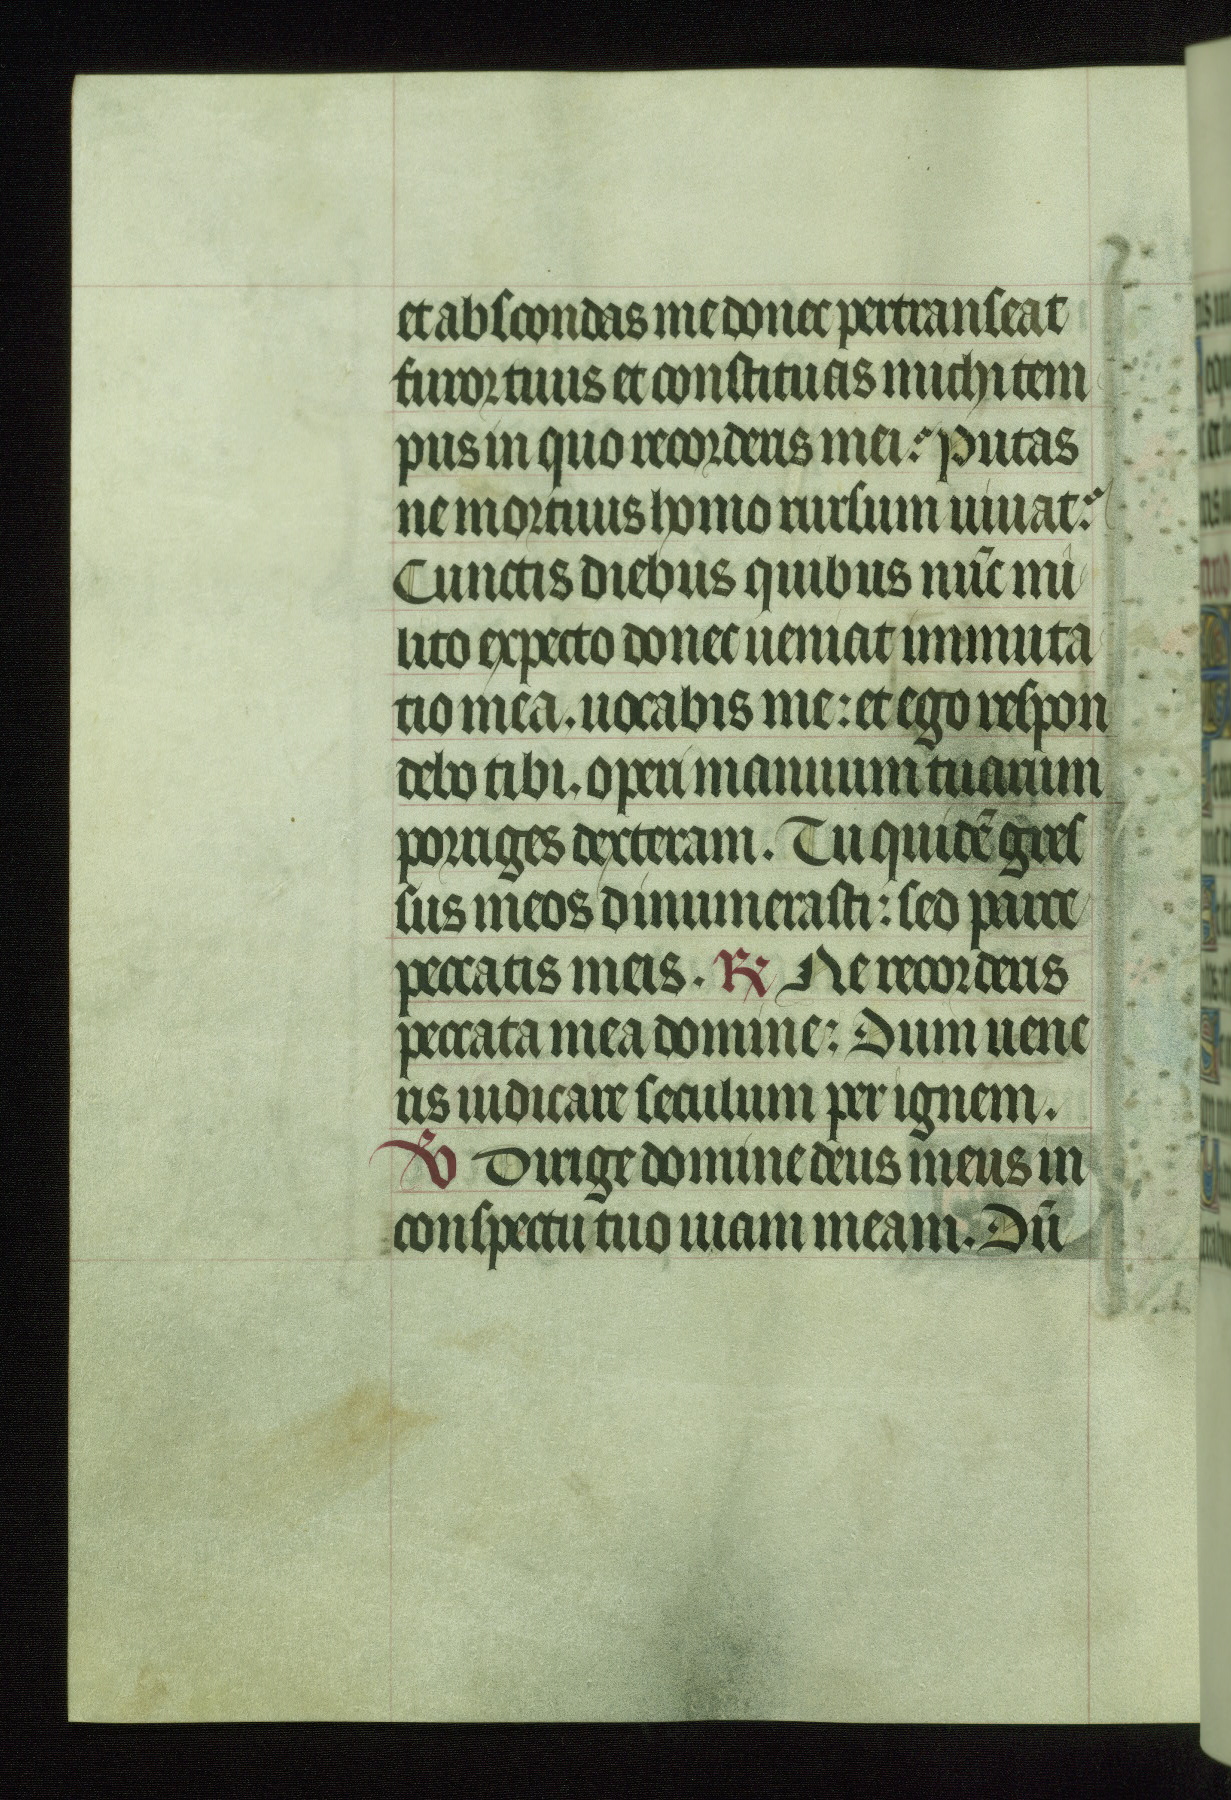 et abscondas me donec pertranseat
furor tuus et constituas michi tem
pus in quo recorderis mei? Putas
ne mortuus homo rursum uiuat?
Cunctis diebus quibus nūc mi
lito expecto donec ueniat immuta
tio mea. uocabis me: et ego respon
debo tibi. operi manuum tuarum
porriges dexteram. Tu quidē gres
sus meos dinumerasti: sed parce
peccatis meis. R Ne recorderis
peccata mea domine: Dum uene
ris iudicare seculum per ignem.
V Dirige domine deus meus in
conspectu tuo uiam meam. Dū